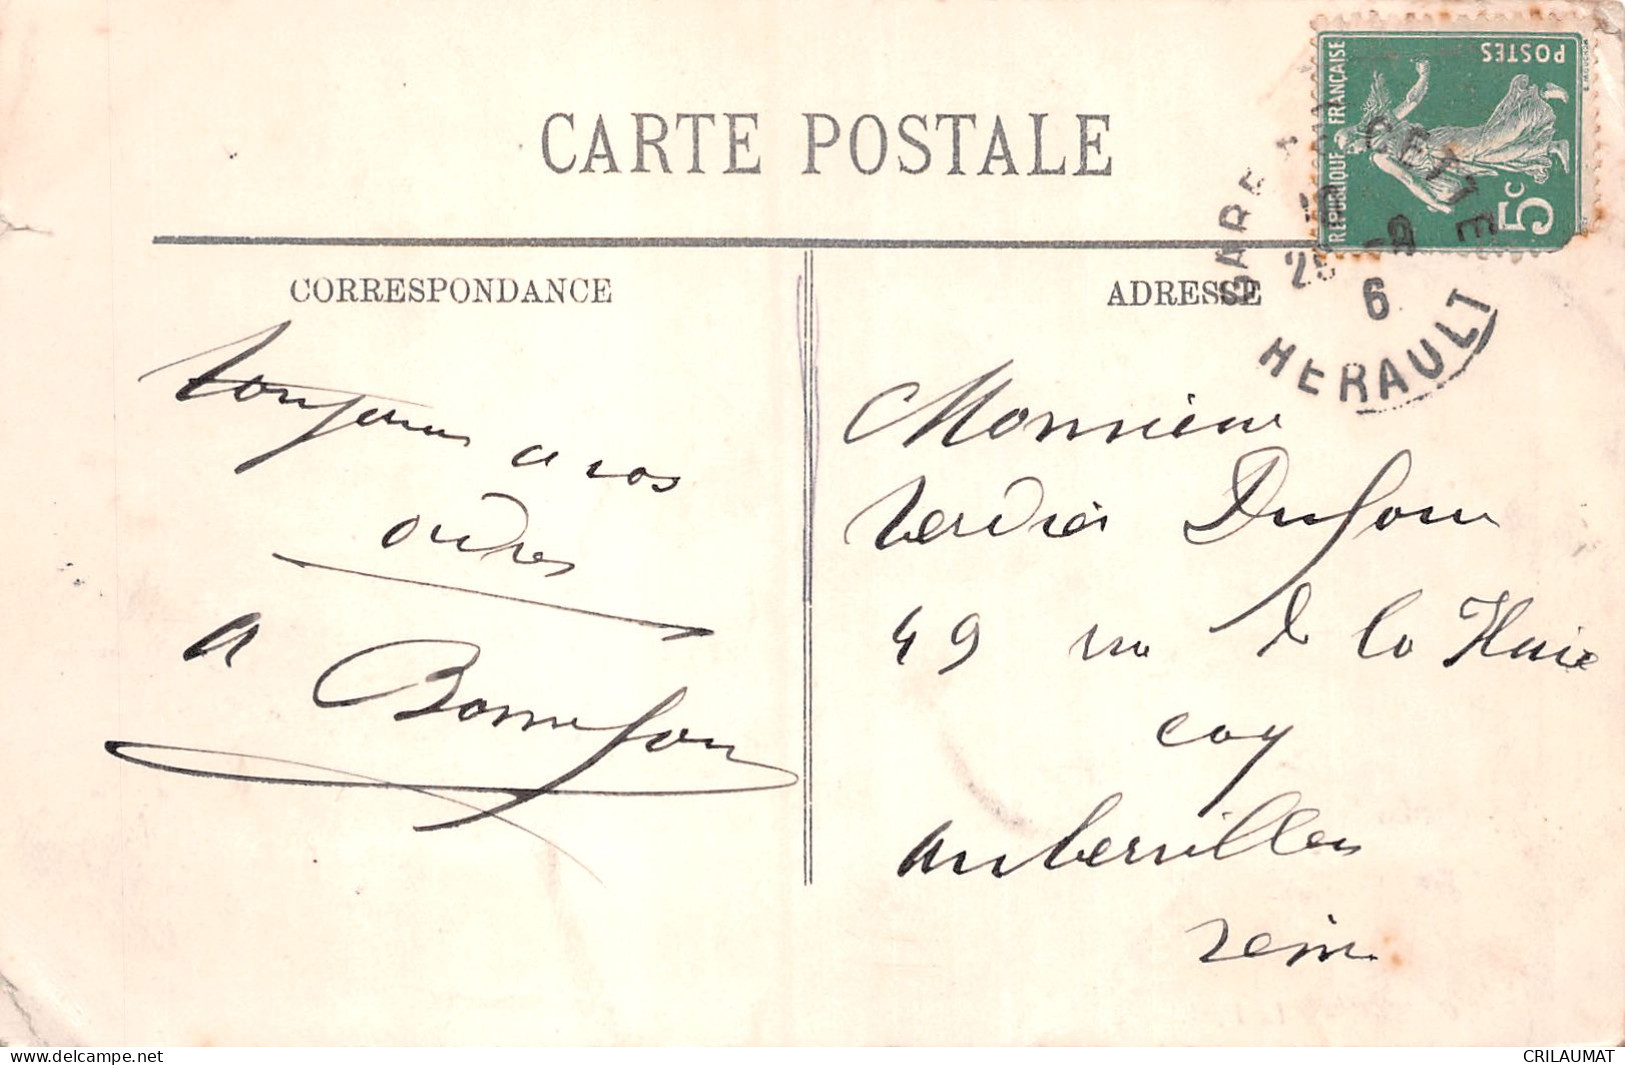 CARTE POSTALE
RÉPUBLIQUE FRANÇAISE
POSTES
5c
GARE DE CETTE
25 -8
6
HERAULT
CORRESPONDANCE
toujours a vos
ordres
A Bonnefon
ADRESSE
Monsieur
Verdier Dufour
49 rue de la Haie
coq
aubervilliers
seine
www.delcampe.net
CRILAUMAT